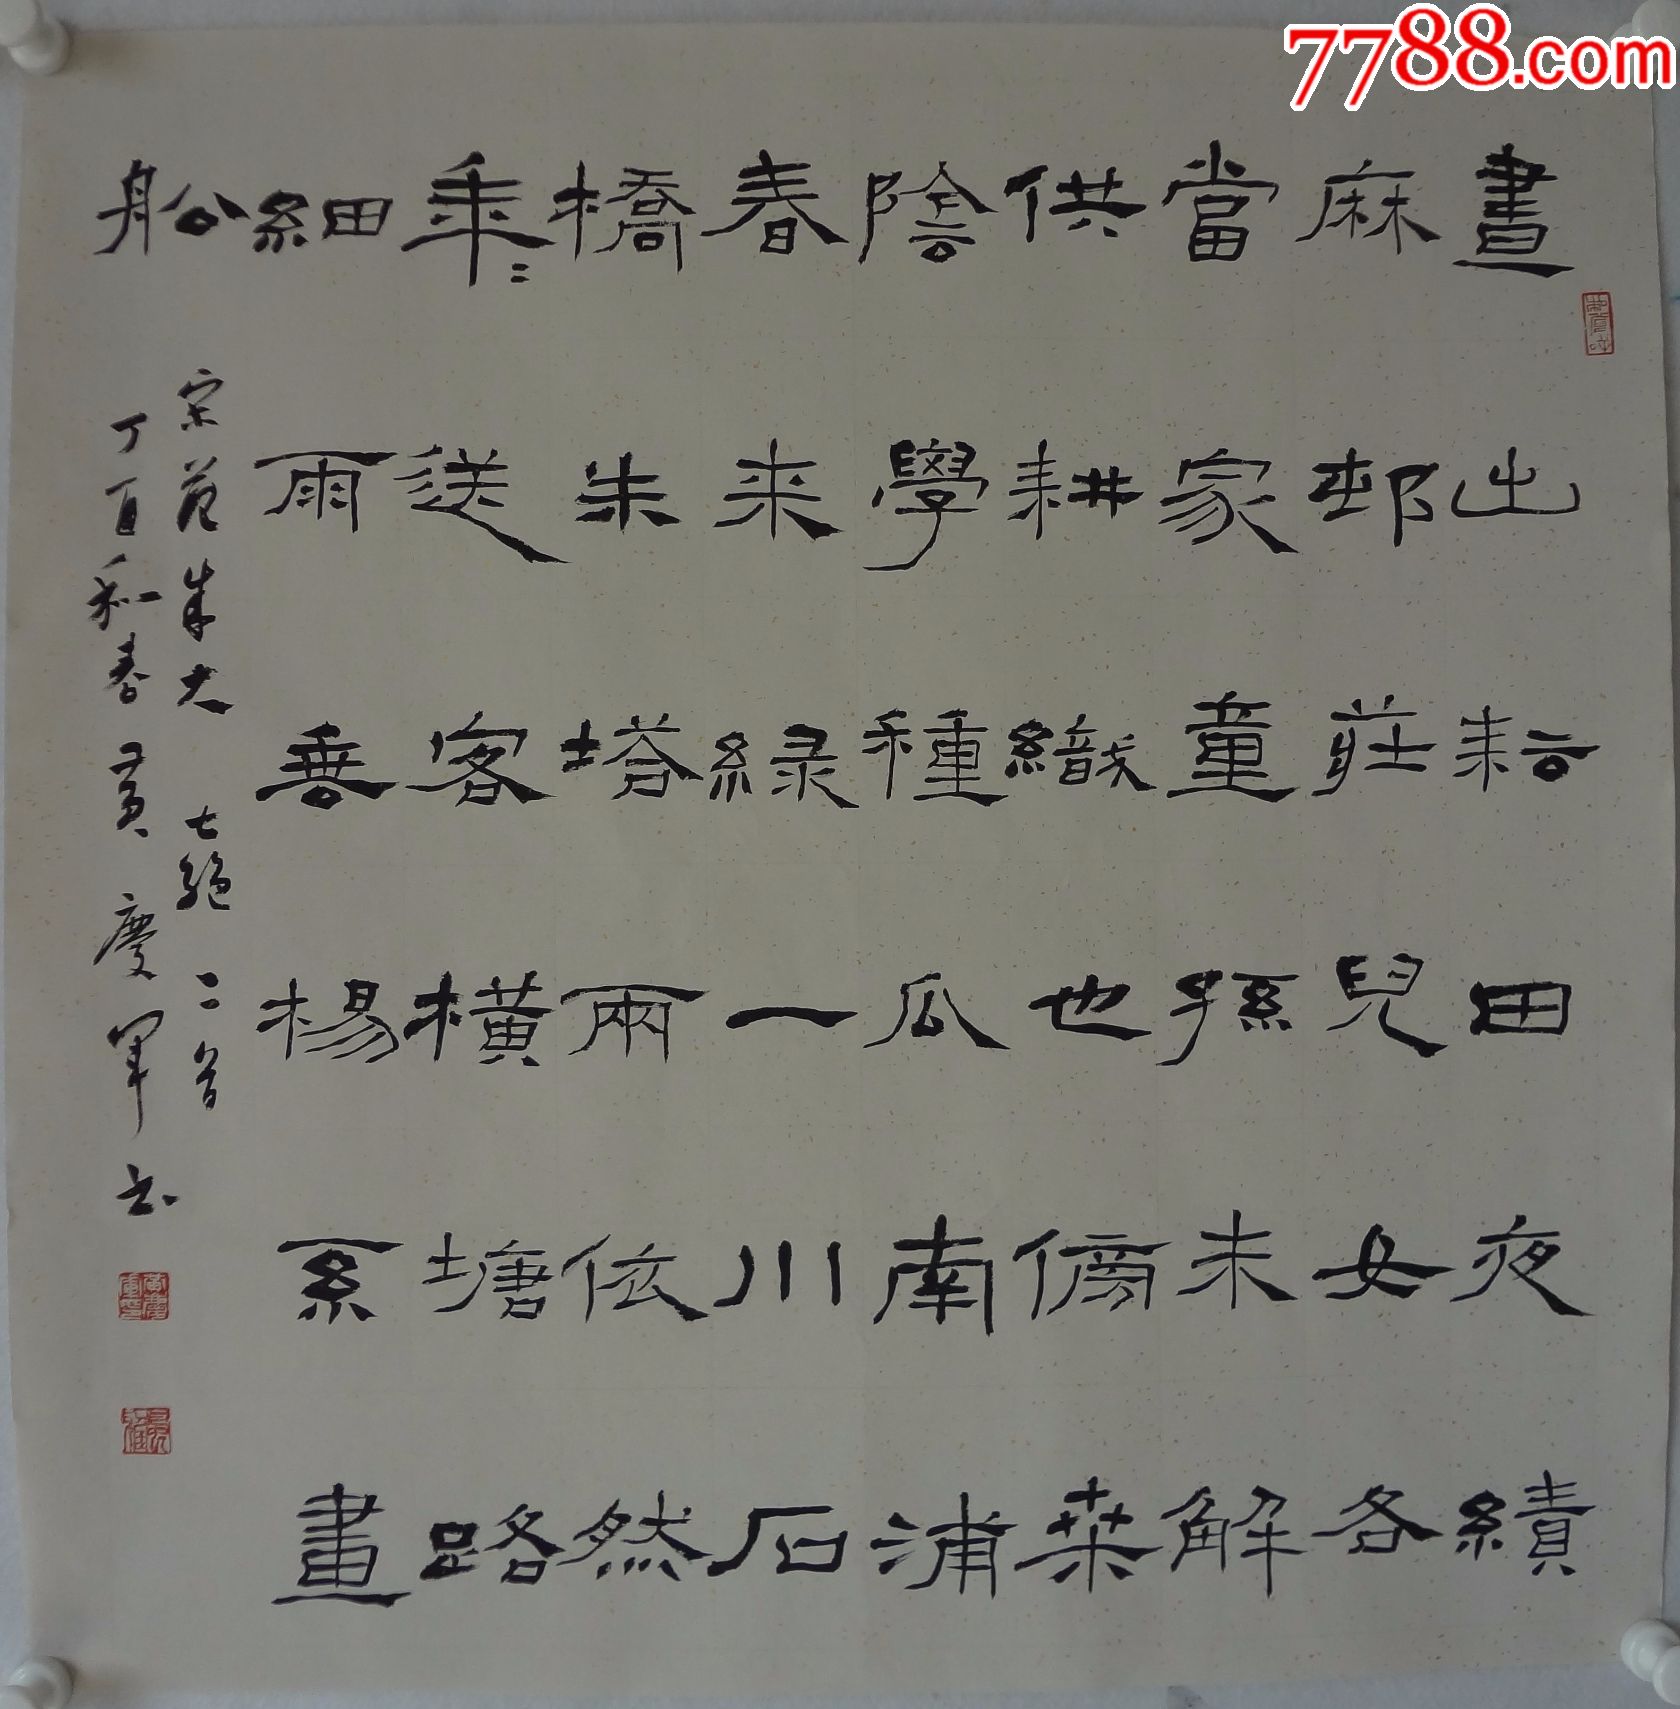 晝出耘田夜績
麻邨莊兒女各
當家童孫未解
供耕織也傍桒
陰學種瓜南浦
春来緑一川石
橋朱塔兩依然
年〻送客橫塘路
細雨垂楊系畫
舩
宋范成大七絕二首
丁酉和春黃慶軍书
7788.com